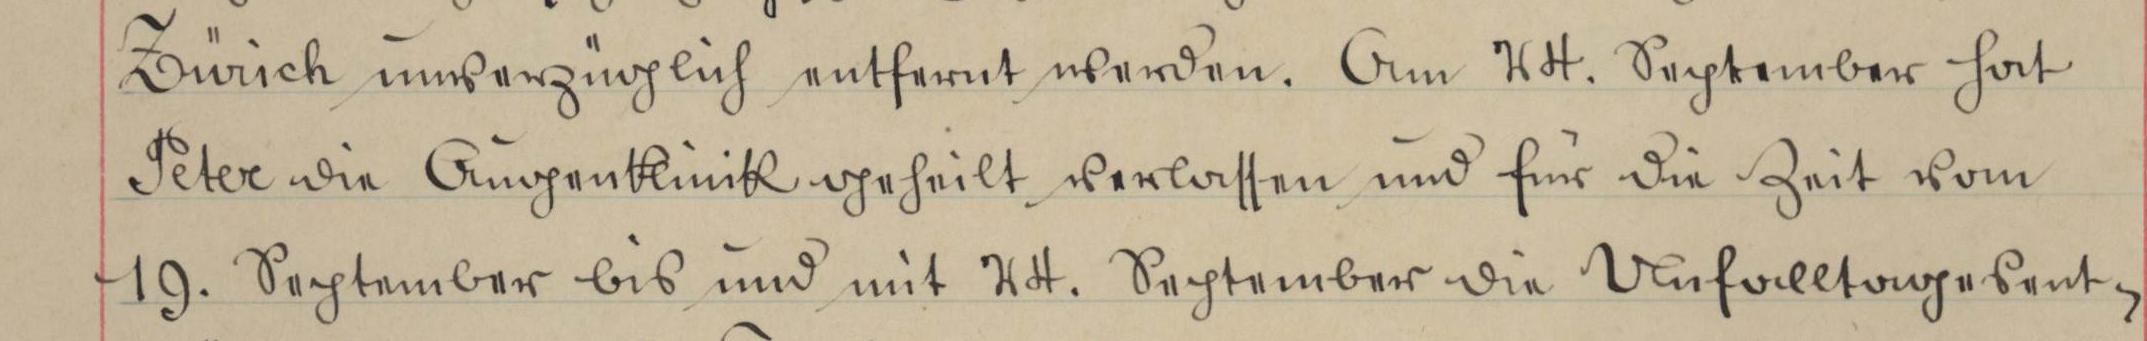 Zürich unverzüglich entfernt werden. Am 24. September hat
Peter die Augenklinik geheilt verlassen und für die Zeit vom
19. September bis und mit 24. September die Unfalltagesent-